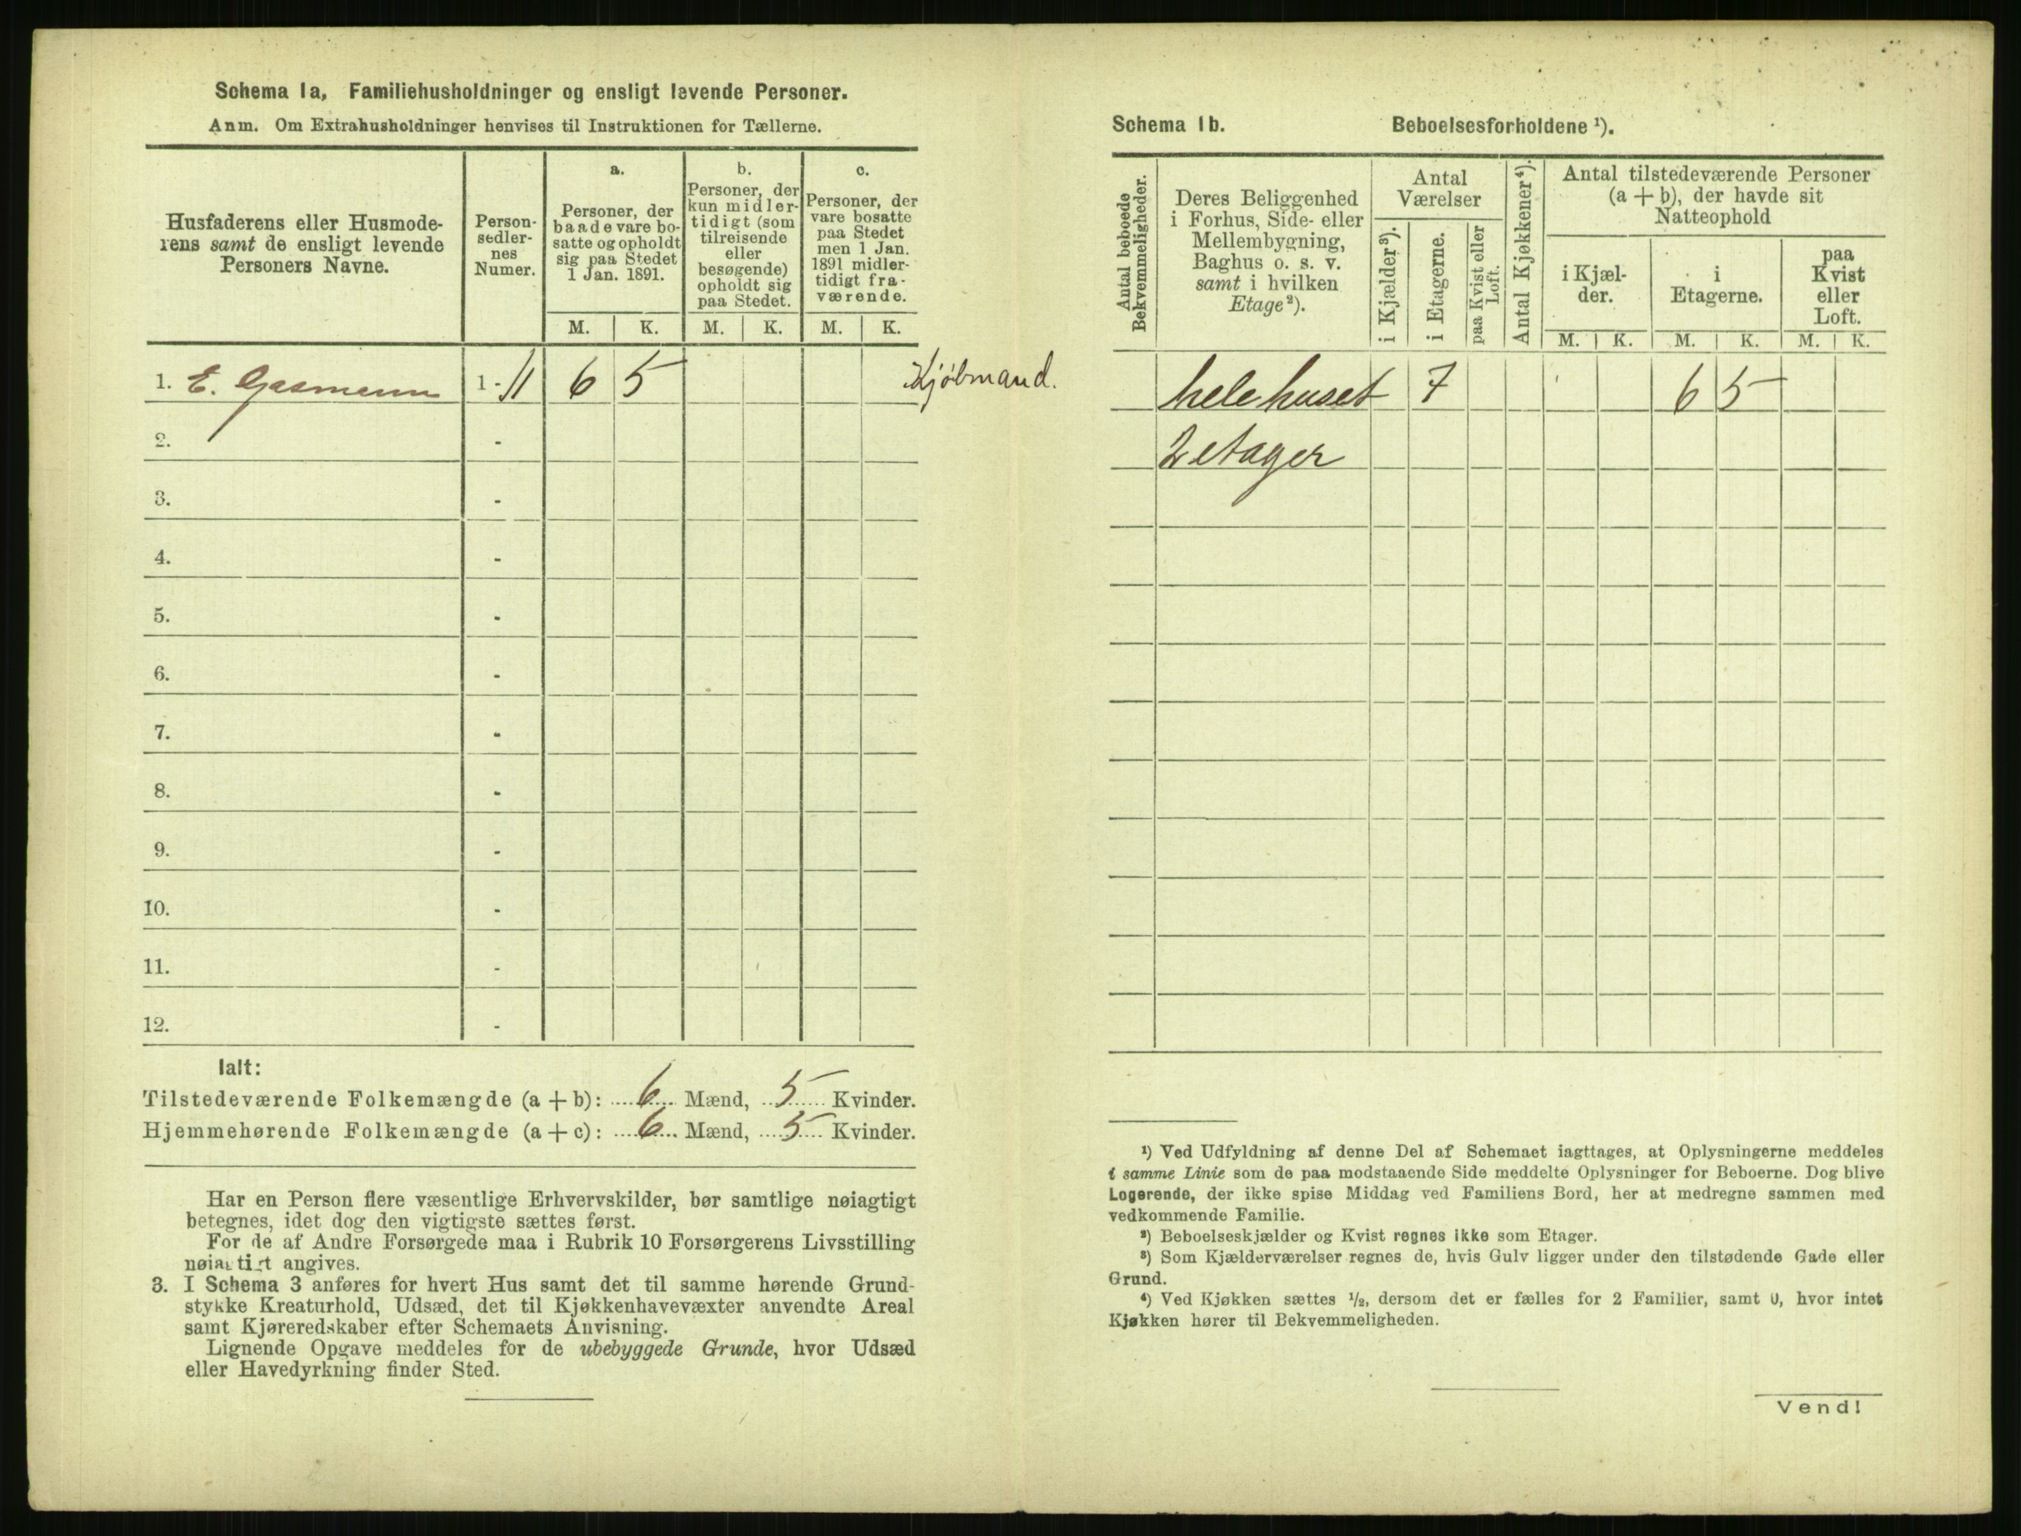 Schema 1a, Familiehusholdninger og ensligt levende Personer.
Anm. Om Extrahusholdninger henvises til Instruktionen for Tællerne.
Husfaderens eller Husmode-
rens samt de ensligt levende
Personers Navne.
Person-
sedler-
nes
Numer.
a.
Personer, der
baade vare bo-
satte og opholdt
sig paa Stedet
1 Jan. 1891.
b.
Personer, der
kun midler-
tidigt (som
tilreisende
eller
besøgende)
opholdt sig
paa Stedet.
c.
Personer, der
vare bosatte
paa Stedet
men 1 Jan.
1891 midler-
tidigt fra-
værende.
M. K. M. K. M. K.
1. E. Gasmann 1 - 11 6 5 Kjøbmand.
2. -
3. -
4. -
5. -
6. -
7. -
8. -
9. -
10. -
11. -
12. -
Ialt:
Tilstedeværende Folkemængde (a + b): 6 Mænd, 5 Kvinder.
Hjemmehørende Folkemængde (a + c): 6 Mænd, 5 Kvinder.
Har en Person flere væsentlige Erhvervskilder, bør samtlige nøiagtigt
betegnes, idet dog den vigtigste sættes først.
For de af Andre Forsørgede maa i Rubrik 10 Forsørgerens Livsstilling
nøiagtigt angives.
3. I Schema 3 anføres for hvert Hus samt det til samme hørende Grund-
stykke Kreaturhold, Udsæd, det til Kjøkkenhavevæxter anvendte Areal
samt Kjøreredskaber efter Schemaets Anvisning.
Lignende Opgave meddeles for de ubebyggede Grunde, hvor Udsæd
eller Havedyrkning finder Sted.
Schema 1b. Beboelsesforholdene ¹).
Antal beboede
Bekvemmeligheder.
Deres Beliggenhed
i Forhus, Side- eller
Mellembygning,
Baghus o. s. v.
samt i hvilken
Etage²).
Antal
Værelser
i Kjælder³).
i Etagerne.
paa Kvist eller
Loft.
Antal Kjøkkener⁴).
Antal tilstedeværende Personer
(a + b), der havde sit
Natteophold
i Kjæl-
der.
i
Etagerne.
paa
Kvist
eller
Loft.
M. K. M. K. M. K.
hele huset 7 6 5
2 etager
¹) Ved Udfyldning af denne Del af Schemaet iagttages, at Oplysningerne meddeles
i samme Linie som de paa modstaaende Side meddelte Oplysninger for Beboerne. Dog blive
Logerende, der ikke spise Middag ved Familiens Bord, her at medregne sammen med
vedkommende Familie.
²) Beboelseskjælder og Kvist regnes ikke som Etager.
³) Som Kjælderværelser regnes de, hvis Gulv ligger under den tilstødende Gade eller
Grund.
⁴) Ved Kjøkken sættes ½, dersom det er fælles for 2 Familier, samt 0, hvor intet
Kjøkken hører til Bekvemmeligheden.
Vend!